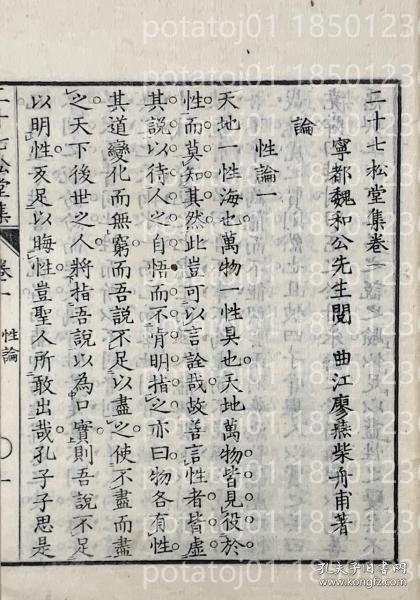 二十七松堂集卷一
寧都魏和公先生閱 曲江廖燕柴舟甫著
論
性論一
天地一性海也萬物一性具也天地萬物皆見役於
性而莫知其然此豈可以言詮哉故善言性者皆虛
其說以待人之自悟而不肯明指之亦曰物各有性
其道變化而無窮而吾說不足以盡之使不盡而盡
之天下後世之人將指吾說以為口實則吾說不足
以明性亥足以晦性豈聖人所敢出哉孔子子思是
二十七松堂集
卷一
性論
一
potatoj01 1850123
孔夫子旧书网
www.kongfz.com